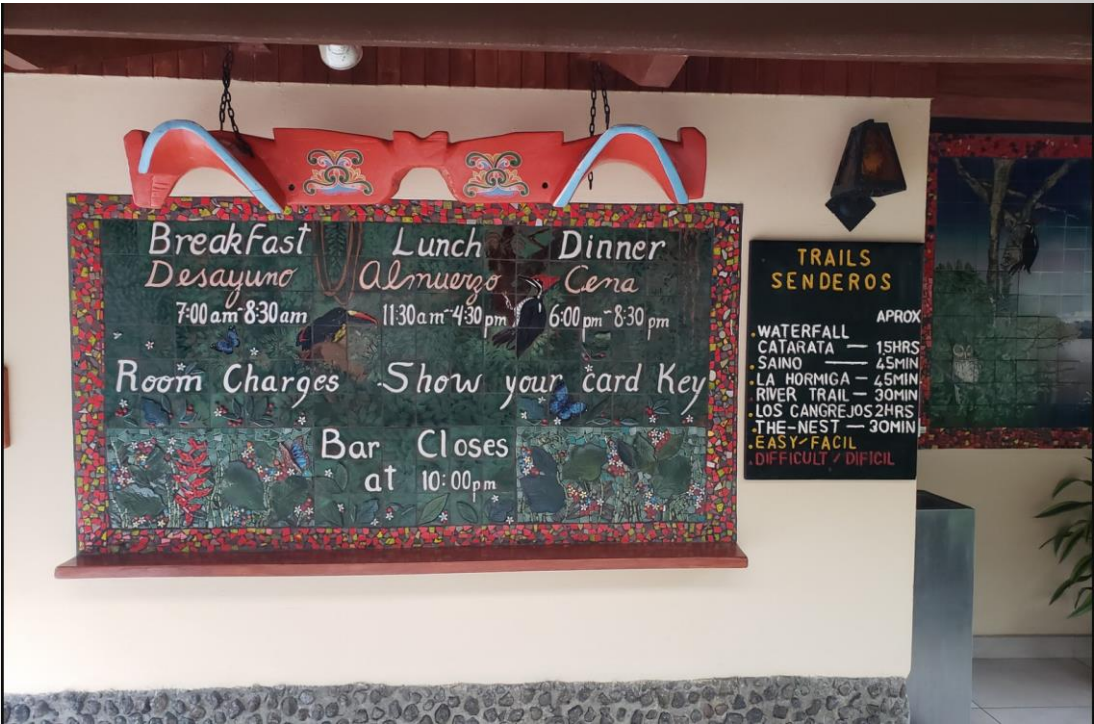 Breakfast Lunch Dinner
Desayuno Almuerzo Cena
7:00 am-8:30 am 11:30 am-4:30 pm 6:00 pm-8:30 pm
Room Charges Show your card Key
Bar Closes
at 10:00 pm
TRAILS
SENDEROS
APROX
WATERFALL
CATARATA — 1.5HRS
SAINO — 45MIN
LA HORMIGA — 45MIN
RIVER TRAIL — 30MIN
LOS CANGREJOS 2HRS
THE-NEST — 30MIN
EASY/FACIL
DIFFICULT/DIFICIL